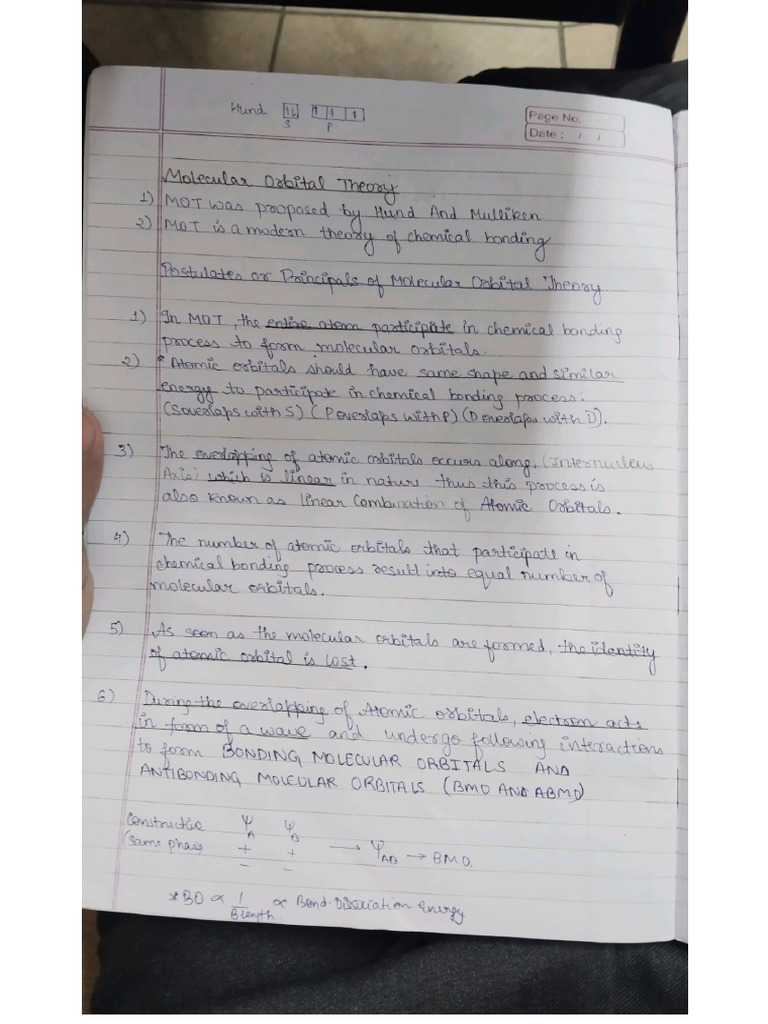 Hund 1L 1 1 1
S P
Page No.
Date : / /
Molecular Orbital Theory
1) MOT was proposed by Hund And Mulliken
2) MOT is a modern theory of chemical bonding
Postulates or Principals of Molecular Orbital Theory
1) In MOT, the entire atom participate in chemical bonding
process to form molecular orbitals.
2) Atomic orbitals should have same shape and similar
energy to participate in chemical bonding process.
(S overlaps with S) (P overlaps with P) (D overlaps with D).
3) The overlapping of atomic orbitals occurs along, (Internucleus
Axis) which is linear in nature thus this process is
also known as linear Combination of Atomic Orbitals.
4) The number of atomic orbitals that participate in
chemical bonding process result into equal number of
molecular orbitals.
5) As soon as the molecular orbitals are formed, the identity
of atomic orbital is lost.
6) During the overlapping of Atomic orbitals, electron acts
in form of a wave and undergo following interactions
to form BONDING MOLECULAR ORBITALS AND
ANTIBONDING MOLECULAR ORBITALS (BMO AND ABMO)
Constructive Ψ A Ψ B
(same phase + + → Ψ AB → BMO.
- -
*BO ∝ 1/B length ∝ Bond Dissociation Energy